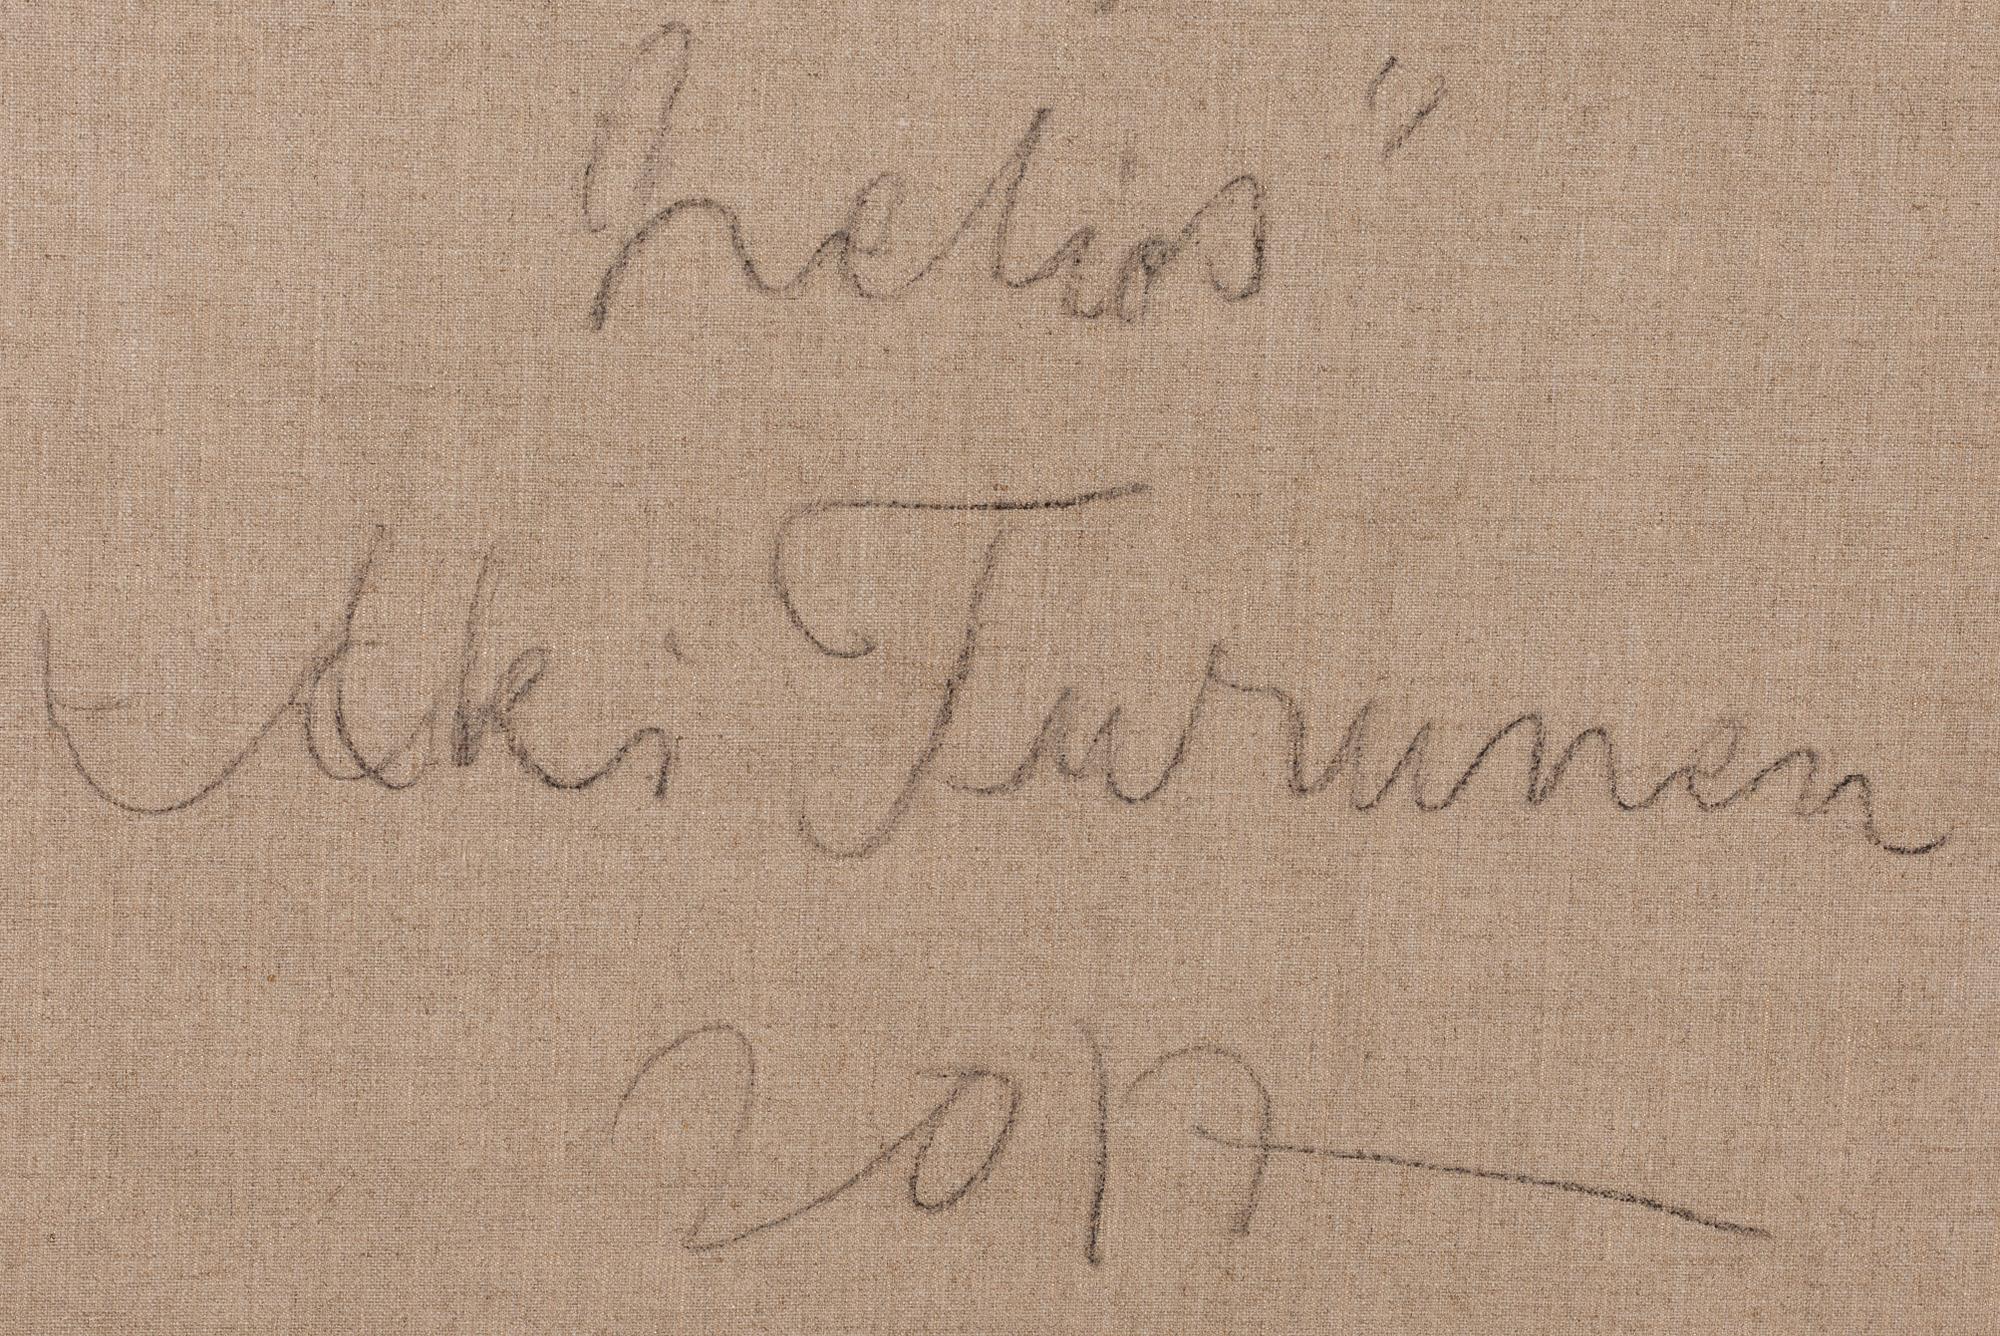 helios"
Aki Turunen
2017